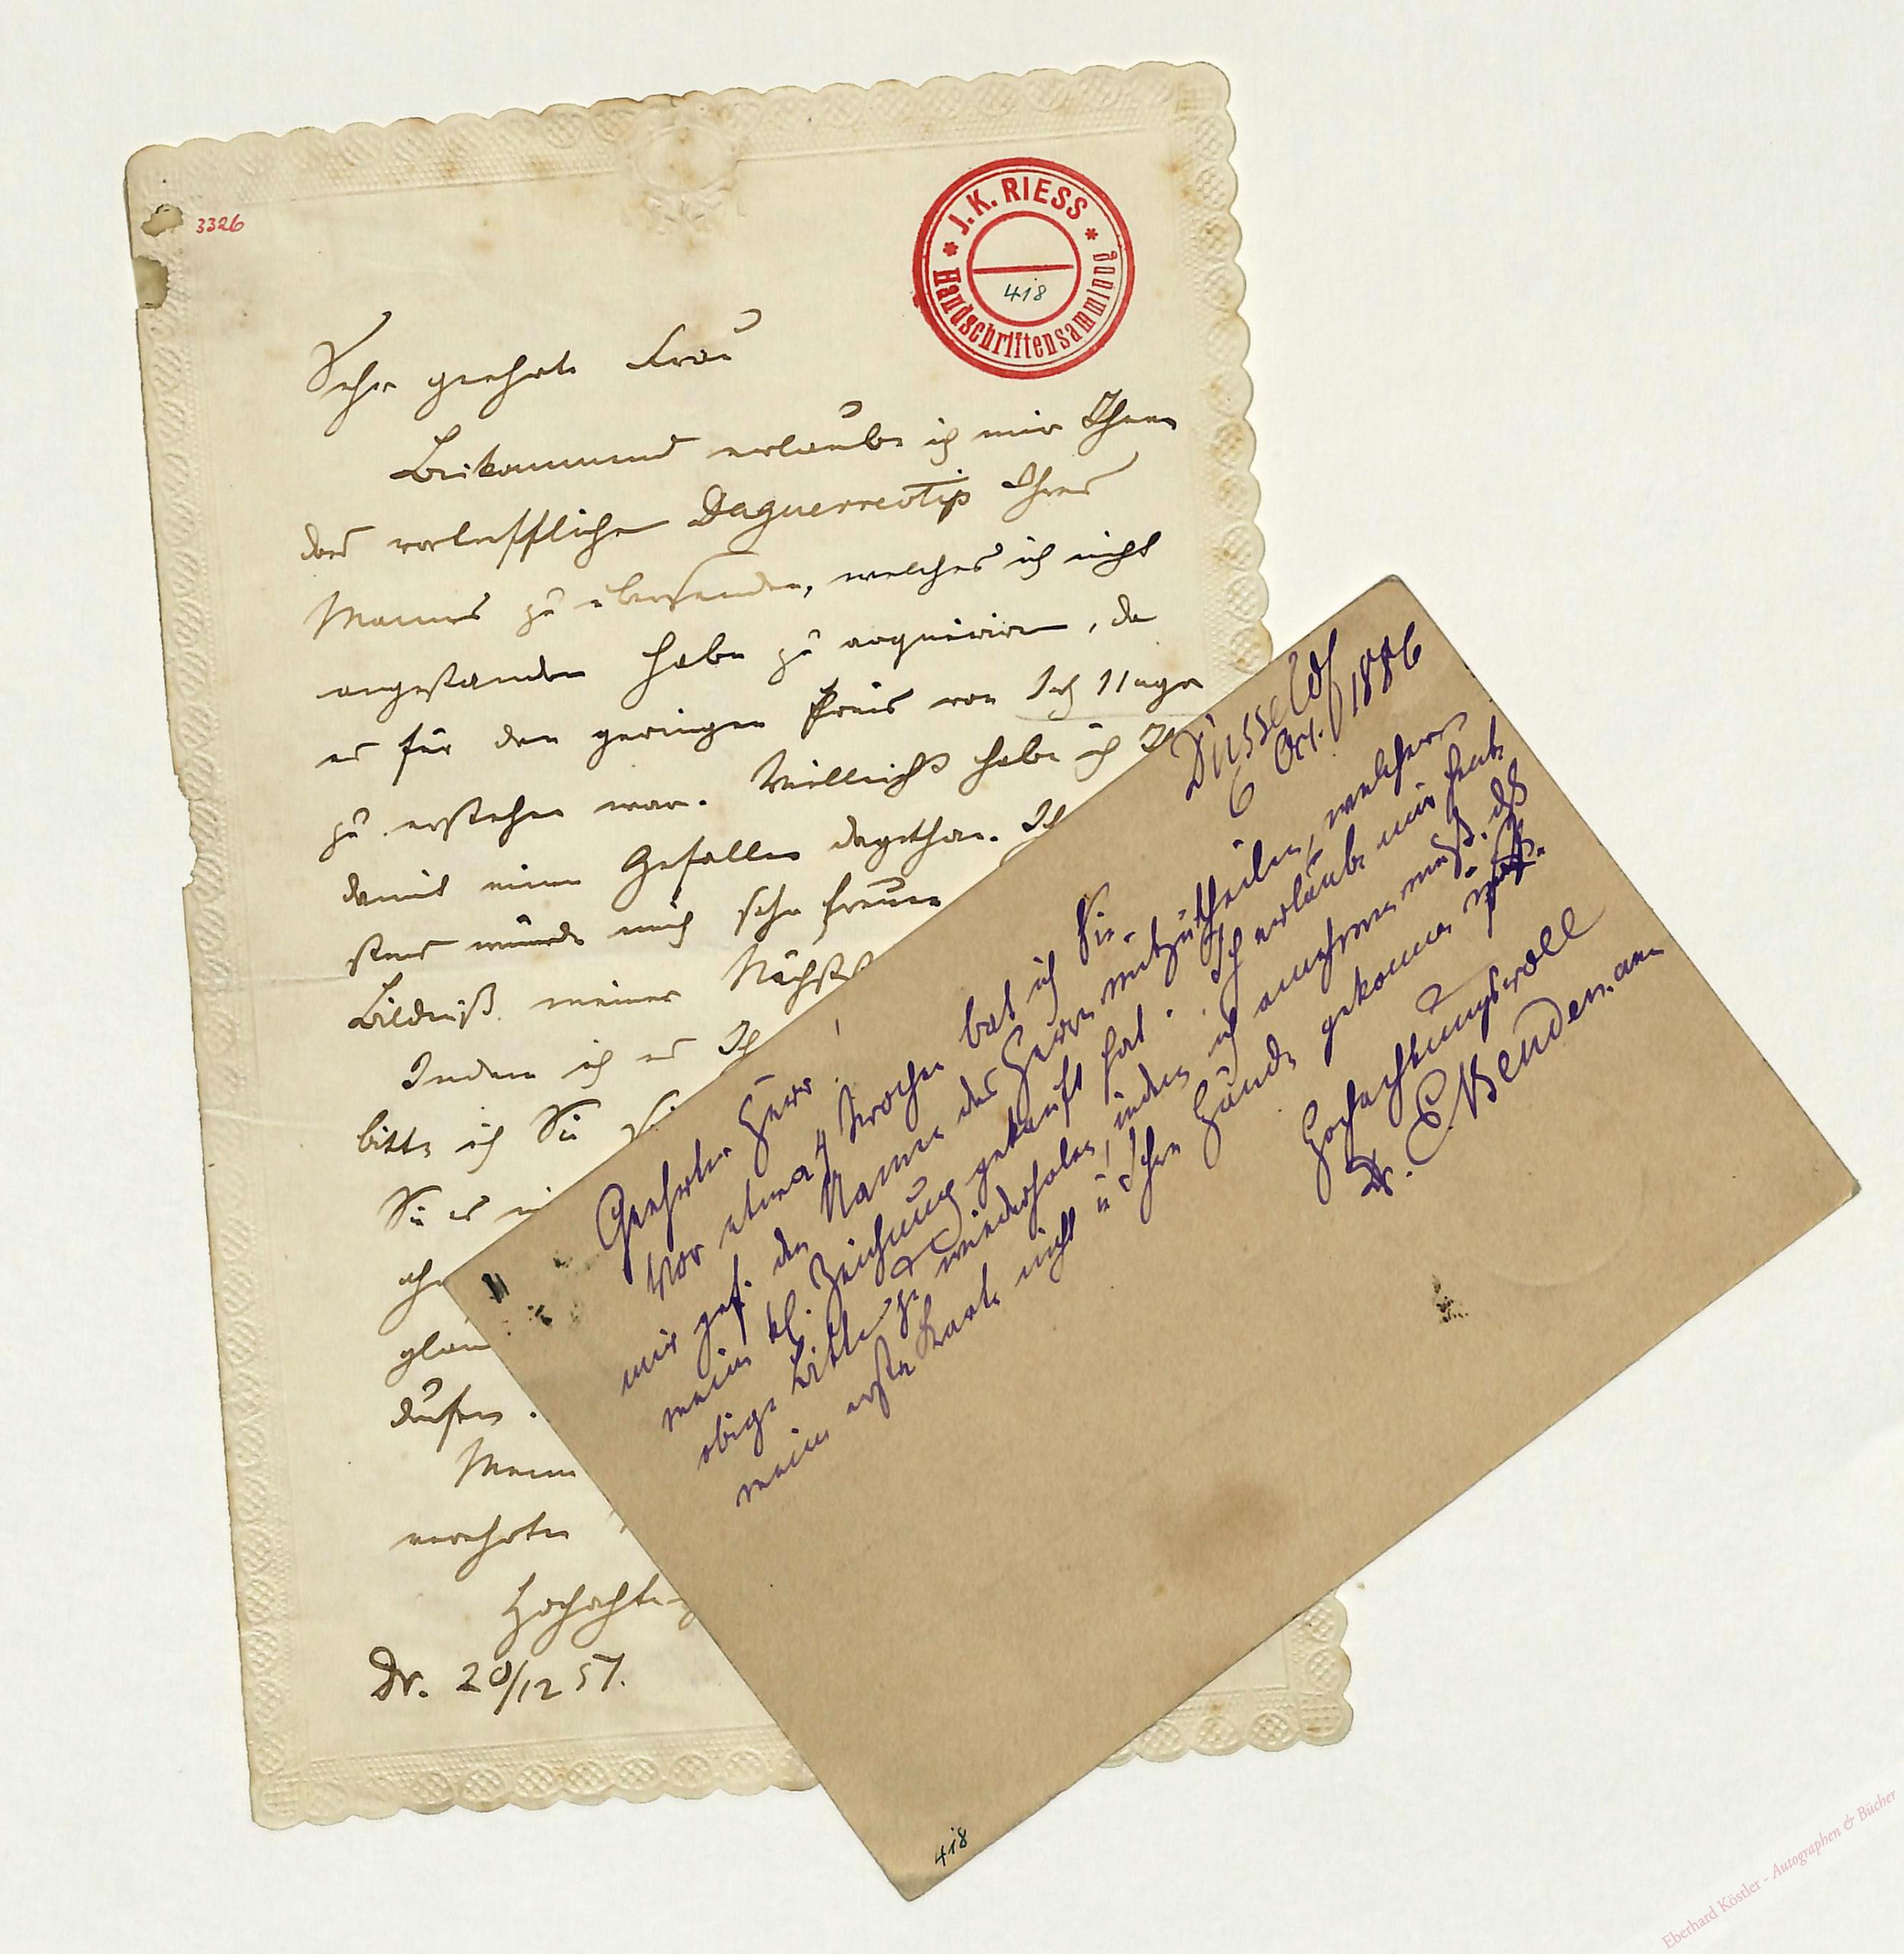 3326
* J. K. RIESS *
Handschriftensammlung
418
Sehr geehrte Frau
Beikommend erlaube ich mir Ihnen
das vortreffliche Daguerreotip Ihres
Mannes zu übersenden, welches ich nicht
angestanden habe zu acquiriren, da
es für den geringen Preis von 11 ngr
zu erstehen war. Vielleicht habe ich
damit einen Gefallen dagethan. Ich
stens würde mich sehr freuen
Bildniß meiner Nächst
Indem ich es
bitte ich Sie
Sie es
glau
dürfen.
Meine
verehrten
Hochacht
Dr. 20/12 57.
Düsseldf
6 Oct. 1886
Geehrter Herr!
Vor etwa 4 Wochen bat ich Sie
mir gef. den Namen des Herrn mitzutheilen, welcher
meine kl. Zeichnung gekauft hat. Ich erlaube mir heute
obige Bitte zu wiederholen, indem ich annehmen muß, dß
meine erste Karte nicht in Ihre Hände gekommen
Hochachtungsvoll
Dr. E. Bendemann
418
Eberhard Köstler - Autographen & Bücher